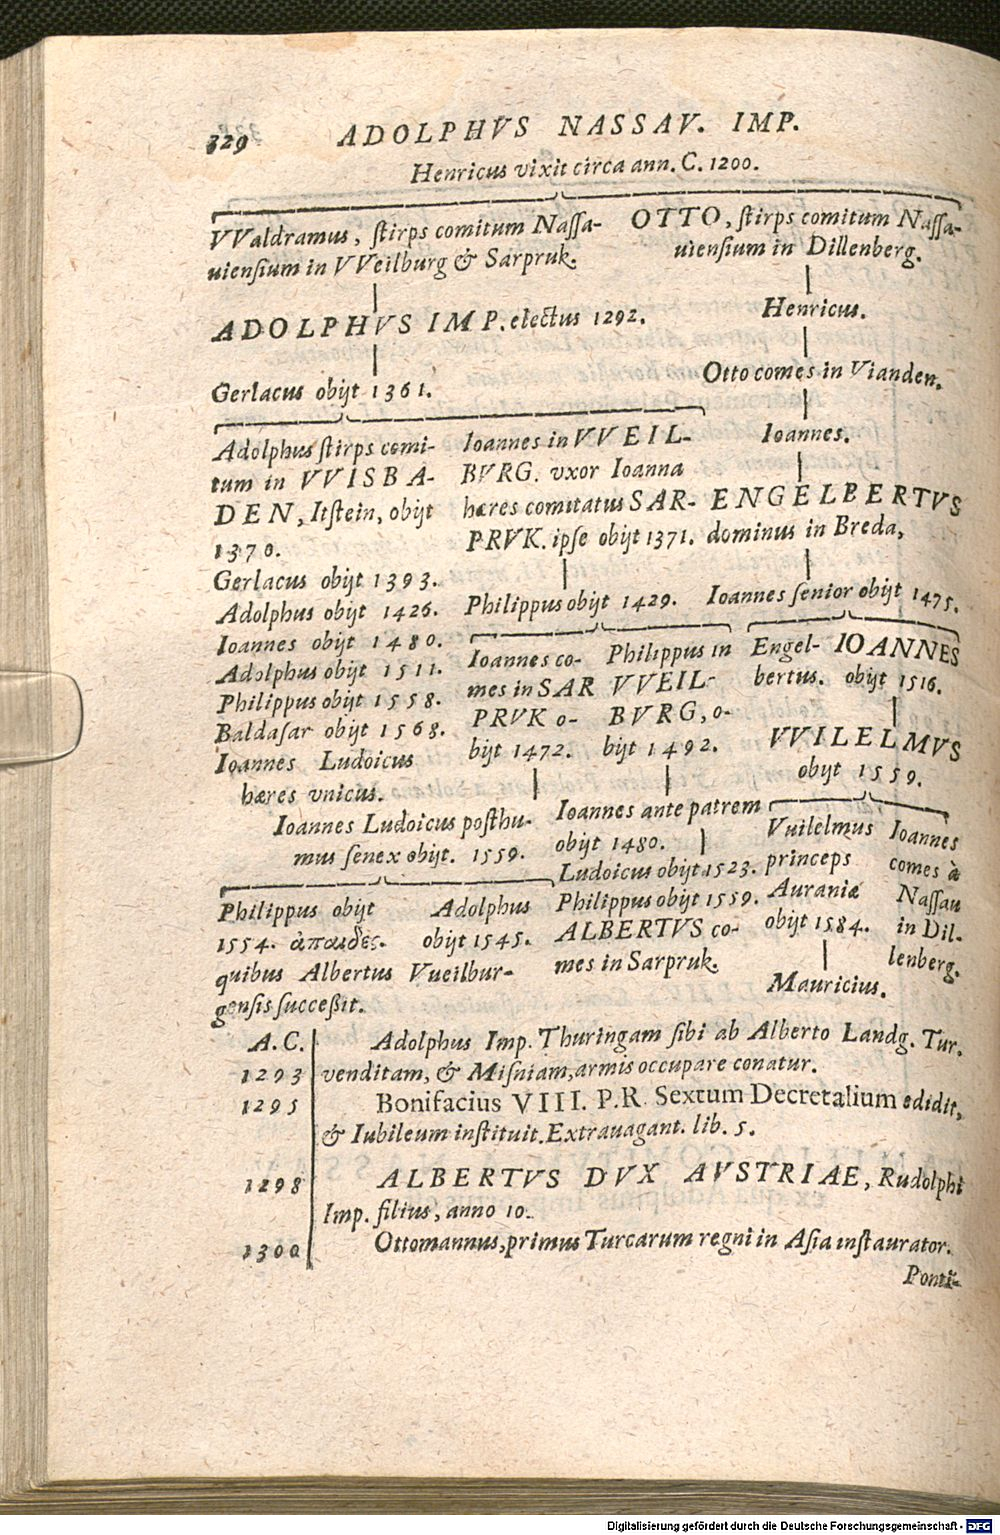 329 ADOLPHVS NASSAV. IMP.
Henricus vixit circa ann. C. 1200.
VValdramus, stirps comitum Nassa-
uiensium in VVeilburg & Sarpruk.
OTTO, stirps comitum Nassa-
uiensium in Dillenberg.
ADOLPHVS IMP. electus 1292.
Henricus.
Gerlacus obijt 1361.
Otto comes in Vianden.
Adolphus stirps comi-
tum in VVISBA-
DEN, Itstein, obijt
1370.
Gerlacus obijt 1393.
Adolphus obijt 1426.
Ioannes obijt 1480.
Adolphus obijt 1511.
Philippus obijt 1558.
Baldasar obijt 1568.
Ioannes Ludoicus
hæres vnicus.
Ioannes in VVEIL-
BVRG. vxor Ioanna
hæres comitatus SAR-
PRVK. ipse obijt 1371.
Philippus obijt 1429.
Ioannes.
ENGELBERTVS
dominus in Breda,
Ioannes senior obijt 1475.
Ioannes co-
mes in SAR
PRVK o-
bijt 1472.
Philippus in
VVEIL-
BVRG, o-
bijt 1492.
Engel-
bertus.
IOANNES
obijt 1516.
VVILELMVS
obijt 1559.
Ioannes Ludoicus posthu-
mus senex obijt. 1559.
Ioannes ante patrem
obijt 1480.
Ludoicus obijt 1523.
Philippus obijt 1559.
ALBERTVS co-
mes in Sarpruk.
Vuilelmus
princeps
Auraniæ
obijt 1584.
Mauricius.
Ioannes
comes à
Nassau
in Dil-
lenberg.
Philippus obijt
1554. ἄπαιδες.
Adolphus
obijt 1545.
quibus Albertus Vueilbur-
gensis succeßit.
A.C.
1293 Adolphus Imp. Thuringam sibi ab Alberto Landg. Tur.
venditam, & Misniam, armis occupare conatur.
1295 Bonifacius VIII. P.R. Sextum Decretalium edidit,
& Iubileum instituit. Extrauagant. lib. 5.
1298 ALBERTVS DVX AVSTRIAE, Rudolphi
Imp. filius, anno 10.
1300 Ottomannus, primus Turcarum regni in Asia instaurator.
Ponti-
Digitalisierung gefördert durch die Deutsche Forschungsgemeinschaft - DFG